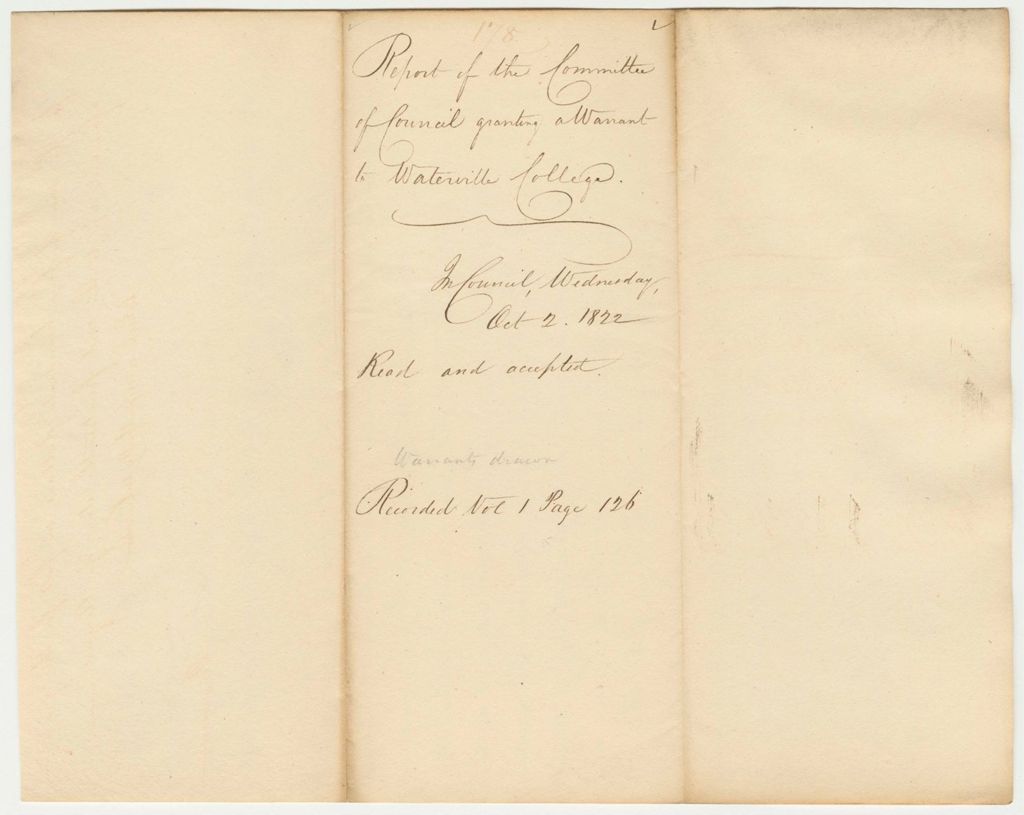 Report of the Committee
of Council granting a Warrant
to Waterville College.
In Council, Wednesday,
Oct 2. 1822
Read and accepted.
Warrants drawn
Recorded Vol 1 Page 126